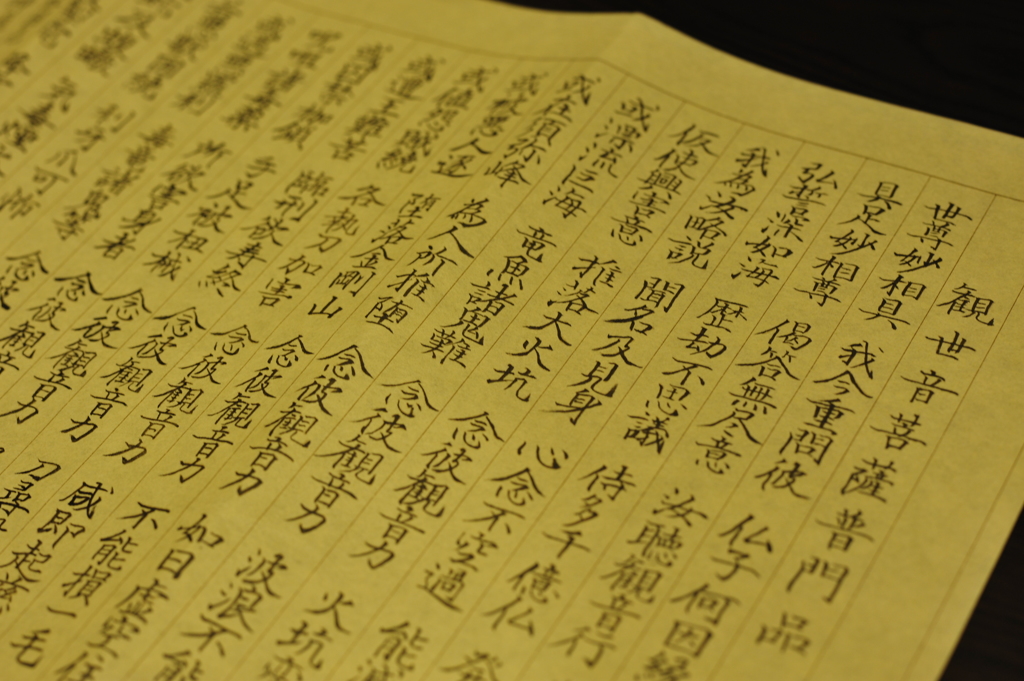 観世音菩薩普門品
世尊妙相具 我今重問彼 仏子何因縁
具足妙相尊 偈答無尽意 汝聴観音行
弘誓深如海 歴劫不思議 侍多千億仏 発
我為汝略説 聞名及見身 心念不空過 能滅
仮使興害意 推落大火坑 念彼観音力 火坑変
或漂流巨海 竜魚諸鬼難 念彼観音力 波浪不能
或在須弥峰 為人所推堕 念彼観音力 如日虚空住
或被悪人逐 堕落金剛山 念彼観音力 不能損一毛
或値怨賊繞 各執刀加害 念彼観音力 咸即起慈
或遭王難苦 臨刑欲寿終 念彼観音力 刀尋段
或囚禁枷鎖 手足被杻械 念彼観音力
呪詛諸毒薬 所欲害身者 念彼観音力
或遇悪羅刹 毒竜諸鬼等 念彼観音
若悪獣囲繞 利牙爪可怖 念彼
気毒煙